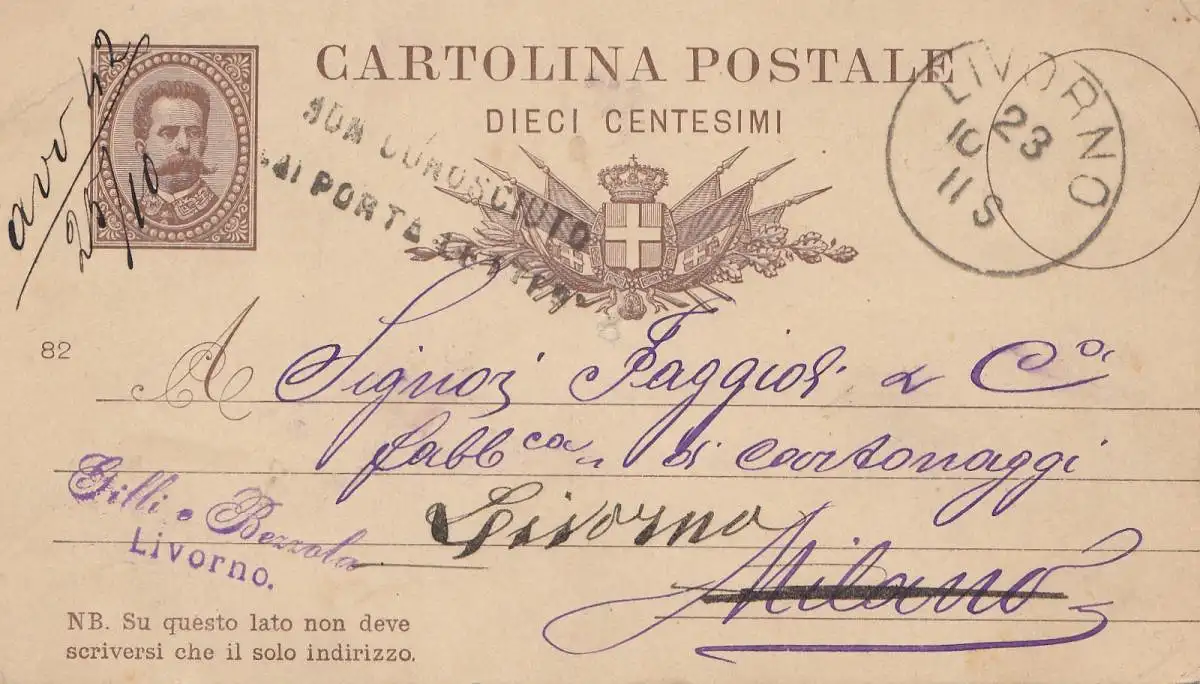 CARTOLINA POSTALE
DIECI CENTESIMI
avv 42
25/10
NON CONOSCIUTO
dai PORTALETTERE
LIVORNO
23
10
11 S
82
A Signori Faggioli & C.i
fabb.ca di cartonaggi
Livorno
Milano
Gilli e Bezzola
Livorno.
NB. Su questo lato non deve
scriversi che il solo indirizzo.